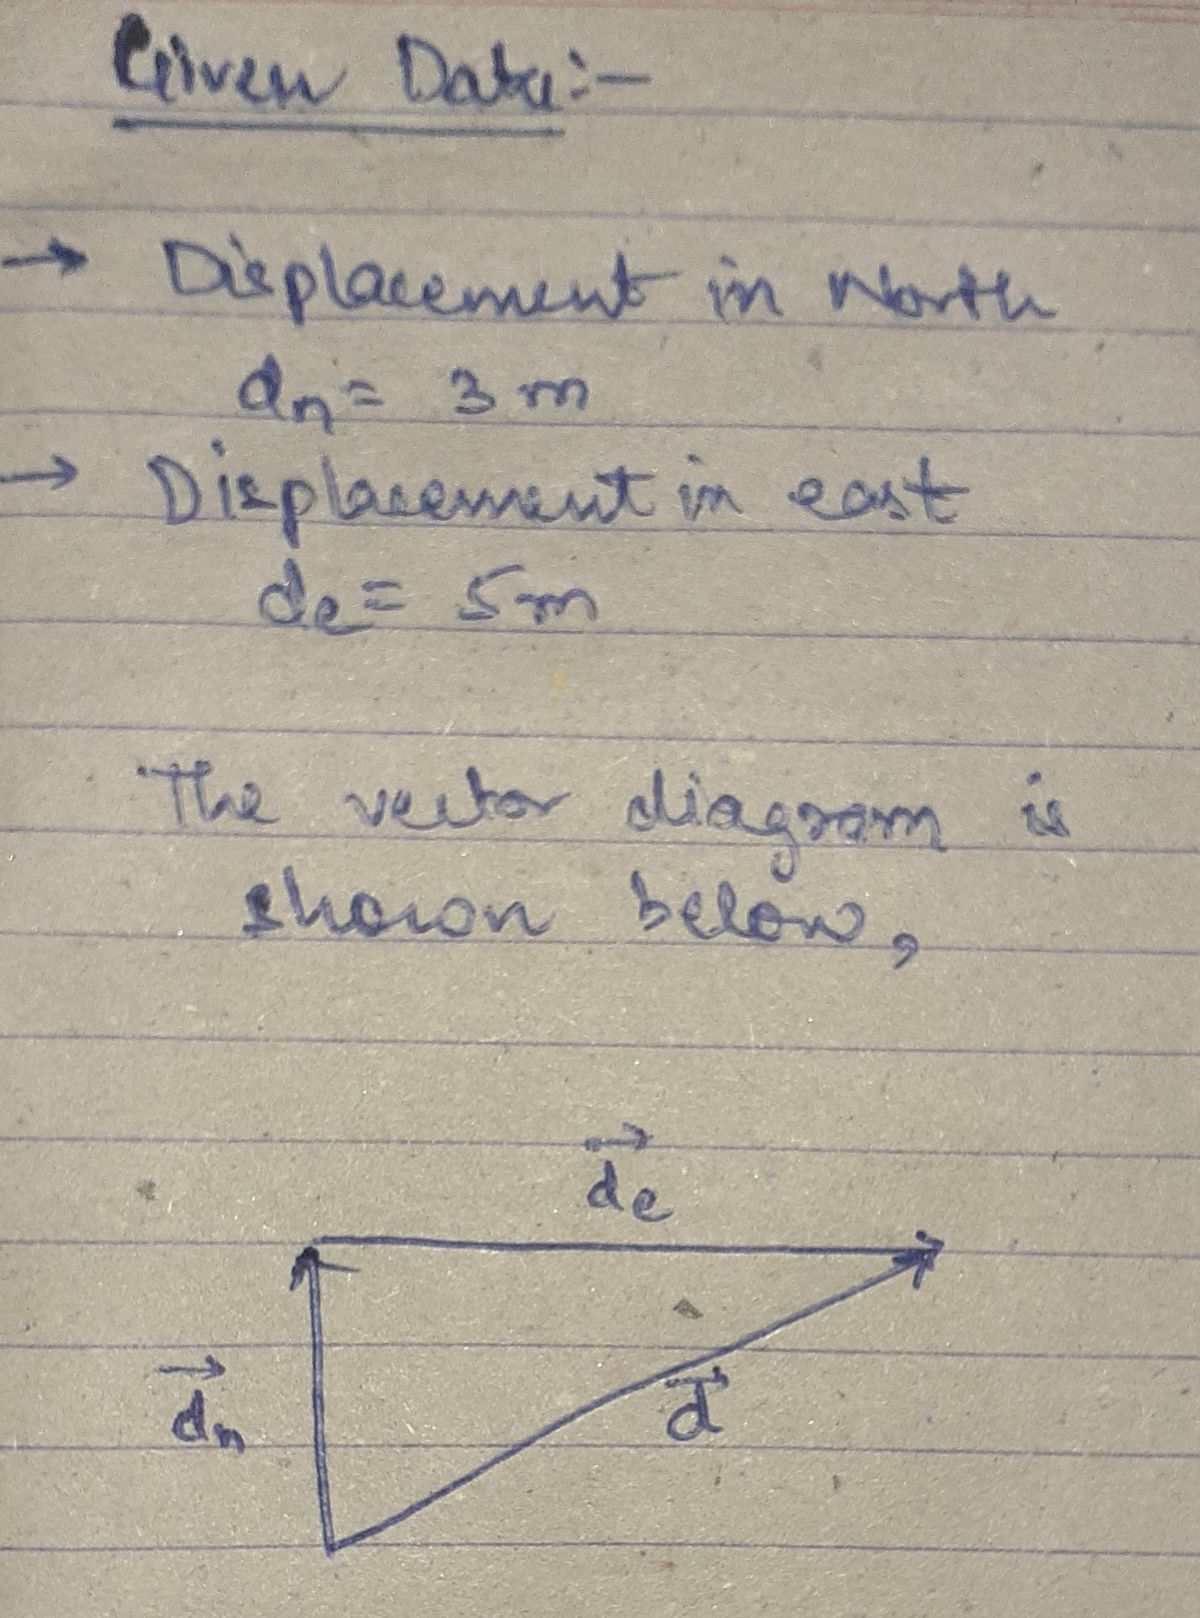 Given Data:-
→ Displacement in North
dn = 3 m
→ Displacement in east
de = 5m
The vector diagram is
shown below,
→
de
→
dn
→
d